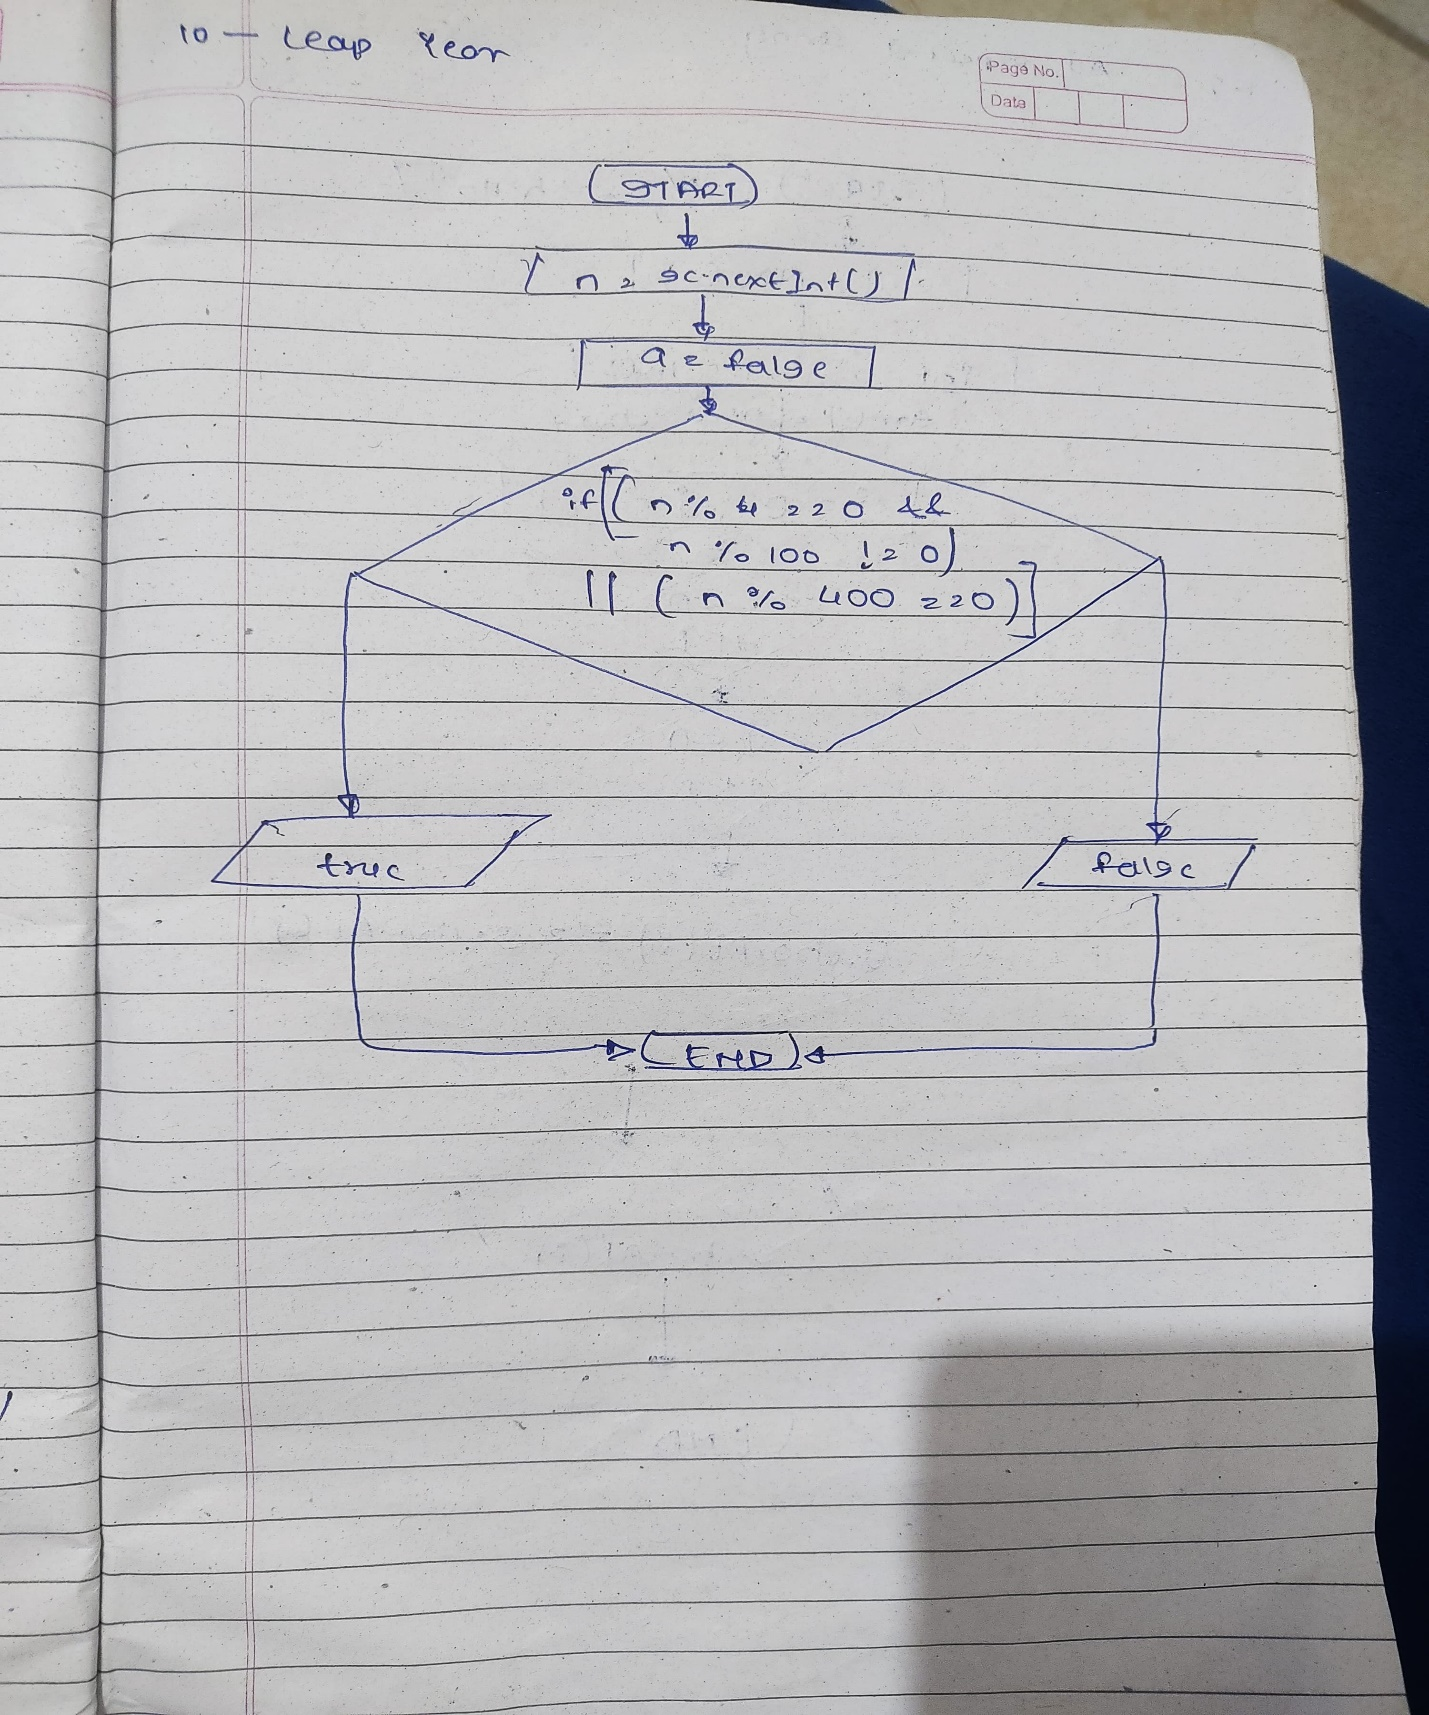 10 - Leap Year
Page No.
Date
START
n = sc.nextInt()
a = false
if [( n % 4 == 0 &&
n % 100 != 0)
|| ( n % 400 == 0)]
true
false
END